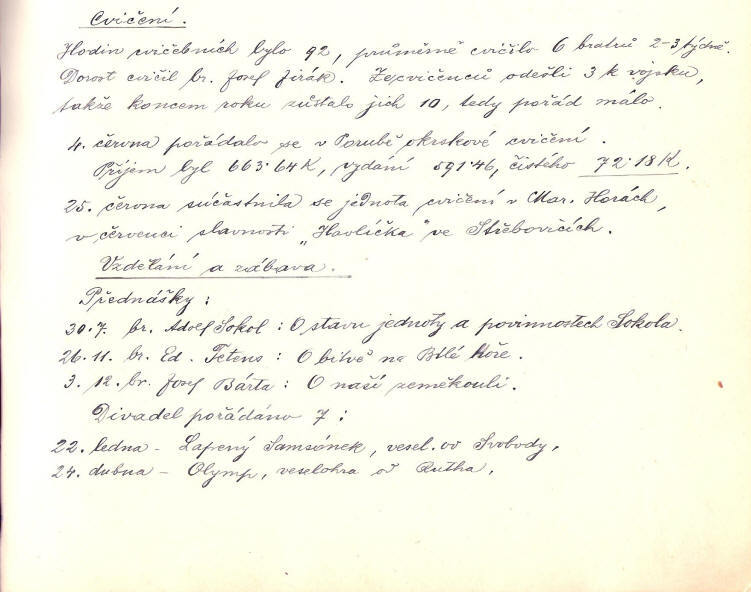 Cvičení.
Hodin cvičebních bylo 92, průměrně cvičilo 6 bratrů 2-3 týdně.
Dorost cvičil br. Josef Jirák. Ze cvičenců odešli 3 k vojsku,
takže koncem roku zůstalo jich 10, tedy pořád málo.
4. června pořádalo se v Porubě okrskové cvičení.
Příjem byl 663·64 K, vydání 591·46, čistého 72·18 K.
25. června súčastnila se jednota cvičení v Mar. Horách,
v červenci slavnosti „Havlíčka" ve Střebovicích.
Vzdělání a zábava.
Přednášky:
30.7. br. Adolf Sokol: O stavu jednoty a povinnostech Sokola.
26.11. br. Ed. Tetens: O bitvě na Bílé Hoře.
3.12. br. Josef Bárta: O naší zeměkouli.
Divadel pořádáno 7:
22. ledna - Lapený Samsónek, vesel. od Svobody,
24. dubna - Olymp, veselohra od Rutha,